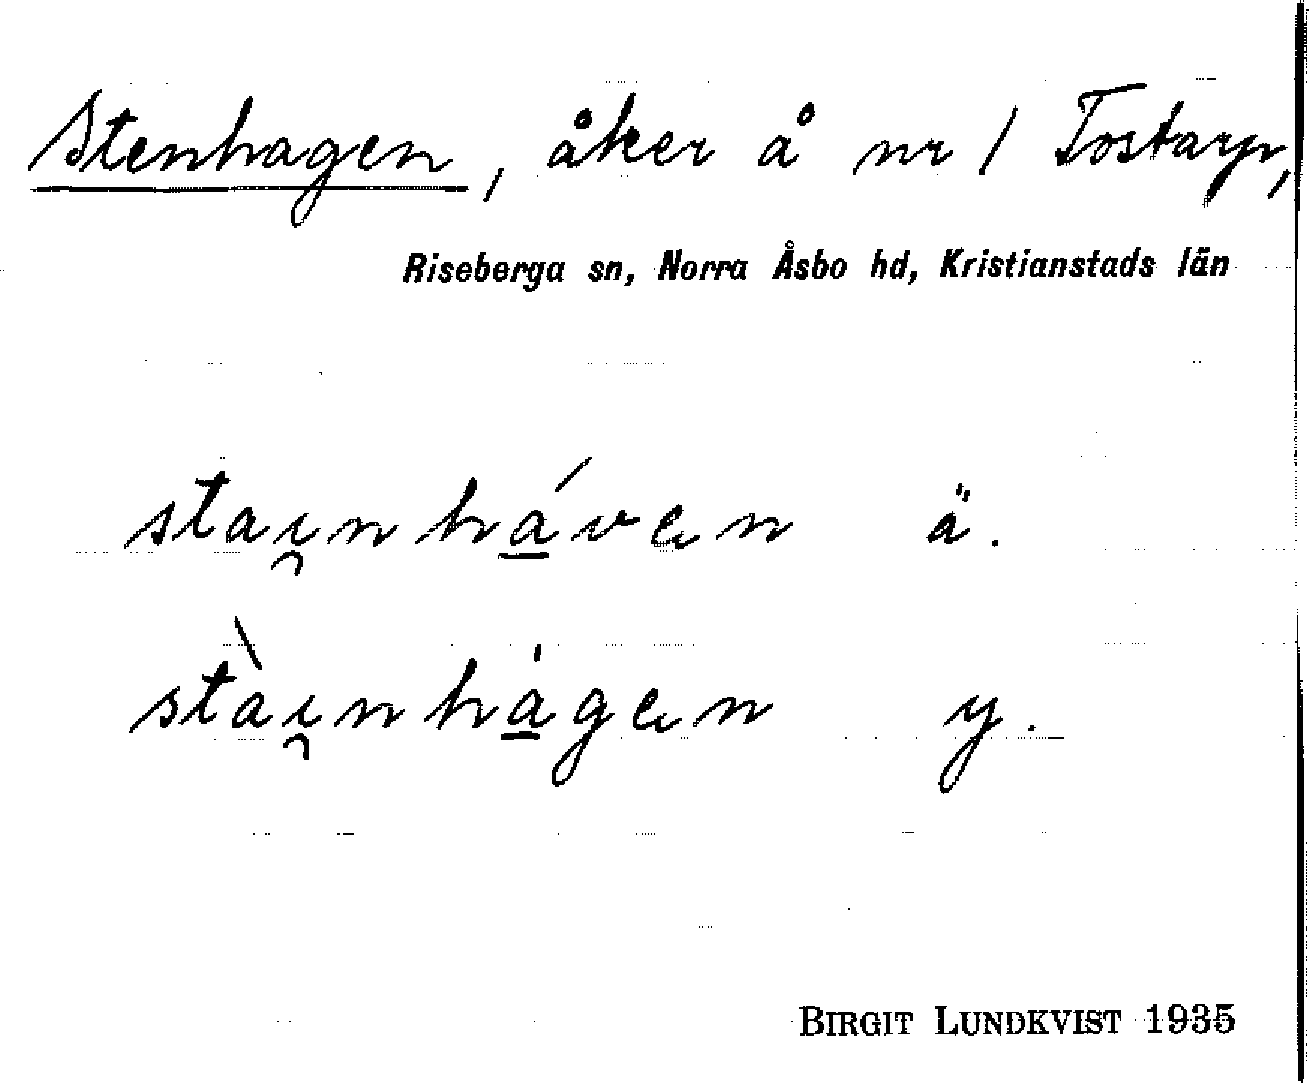 Stenhagen, åker å nr 1 Tostarp,
Riseberga sn, Norra Åsbo hd, Kristianstads län
stai̯nhá̱ven ä.
stài̯nhá̱gen y.
BIRGIT LUNDKVIST 1935